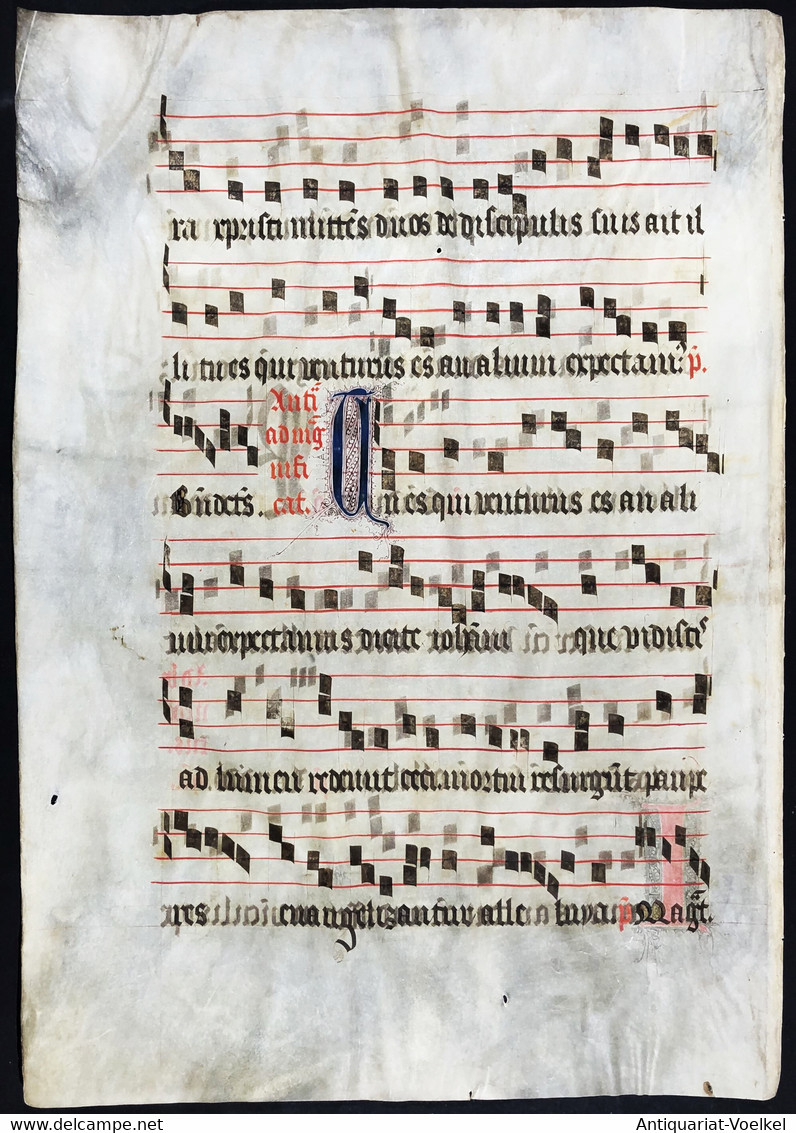 ra xpristi mittēs duos de discipulis suis ait il
li tu es qui venturus es an alium expectam? p̄.
Antī
ad mḡ
nifi
cat.
Bn̄dcts. Tu es qui venturus es an ali
um expectamus dicite iohanni que vidistis
ad lumen redeunt ceci mortui resurgūt paupe
res evangelizantur alleluya p̄ Magt̄.
Antiquariat-Voelkel